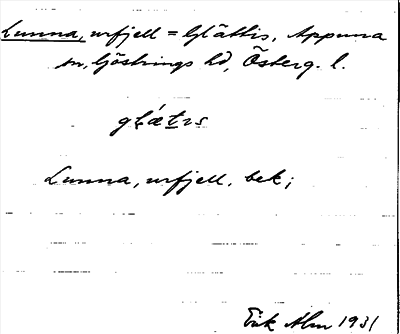 Lunna, urfjell = Glättis, Appuna
sn, Göstrings hd, Österg. l.
glǽtɪs
Lunna, urfjell. bek;
Erik Alm 1931